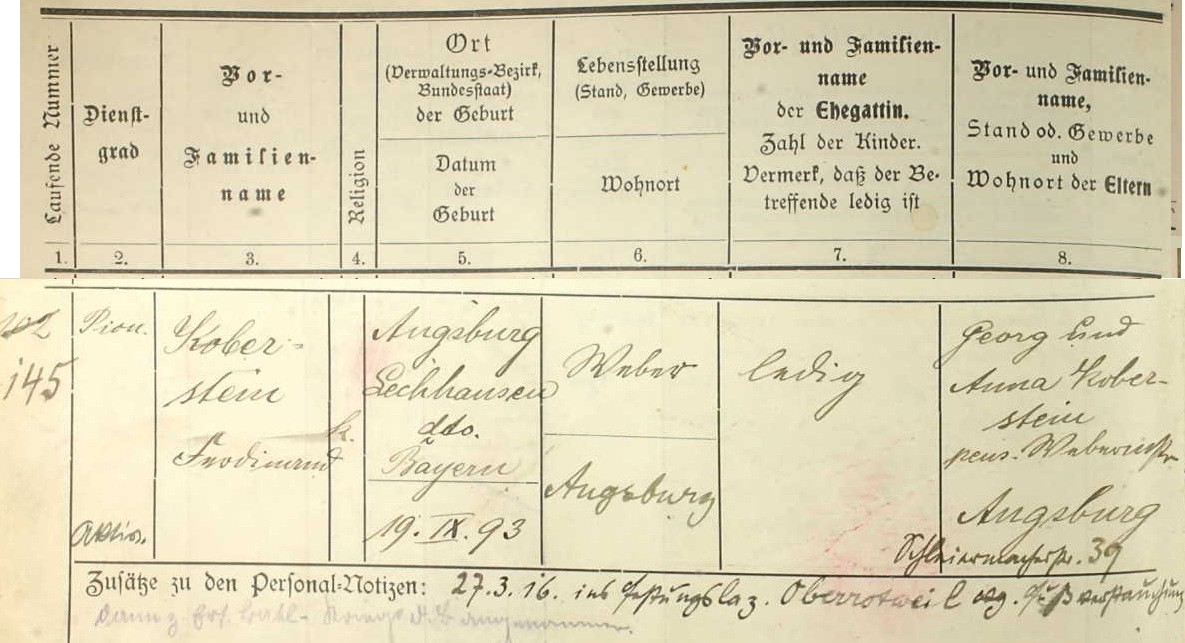 Laufende Nummer
Dienst-
grad
Vor-
und
Familien-
name
Religion
Ort
(Verwaltungs-Bezirk,
Bundesstaat)
der Geburt
Datum
der
Geburt
Lebensstellung
(Stand, Gewerbe)
Wohnort
Vor- und Familien-
name
der Ehegattin.
Zahl der Kinder.
Vermerk, daß der Be-
treffende ledig ist
Vor- und Familien-
name,
Stand od. Gewerbe
und
Wohnort der Eltern
1. 2. 3. 4. 5. 6. 7. 8.
102
145
Pion.
Aktiv.
Kober-
stein
Ferdinand
k.
Augsburg
Lechhausen
dto.
Bayern
19. IX. 93
Weber
Augsburg
ledig
Georg und
Anna Kober-
stein
pens. Webermstr
Augsburg
Schleiermacherstr. 39
Zusätze zu den Personal-Notizen: 27.3.16. ins Festungslaz. Oberrotweil wg. Fußverstauchung